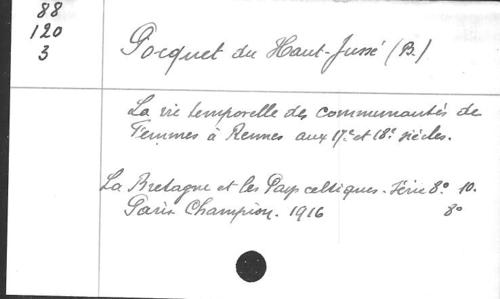 88
120
3
Pocquet du Haut-Jussé (B.)
La vie temporelle des communautés de
Femmes à Rennes aux 17e et 18e siècles.
La Bretagne et les Pays celtiques. Série 8o. 10.
Paris Champion. 1916 8o